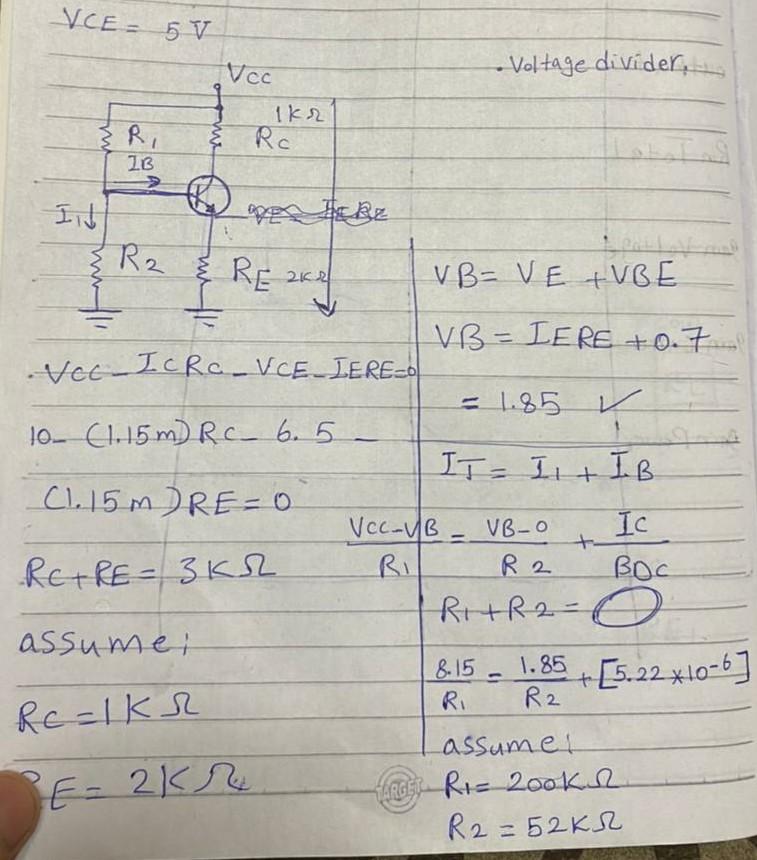 VCE = 5 V
. Voltage divider,
VCC
1KΩ
R1
RC
IB
I1↓
R2
RE 2KΩ
.VCC - ICRC - VCE - IERE=0
10- (1.15m)RC- 6.5 -
(1.15m)RE=0
RC+RE= 3KΩ
assume;
RC=1KΩ
RE= 2KΩ
VB= VE +VBE
VB= IERE +0.7
= 1.85 ✓
IT= I1 + IB
VCC-VB/R1 = VB-0/R2 + IC/BDC
R1+R2=
8.15/R1 = 1.85/R2 + [5.22x10-6]
assume;
R1= 200KΩ
R2 = 52KΩ
TARGET